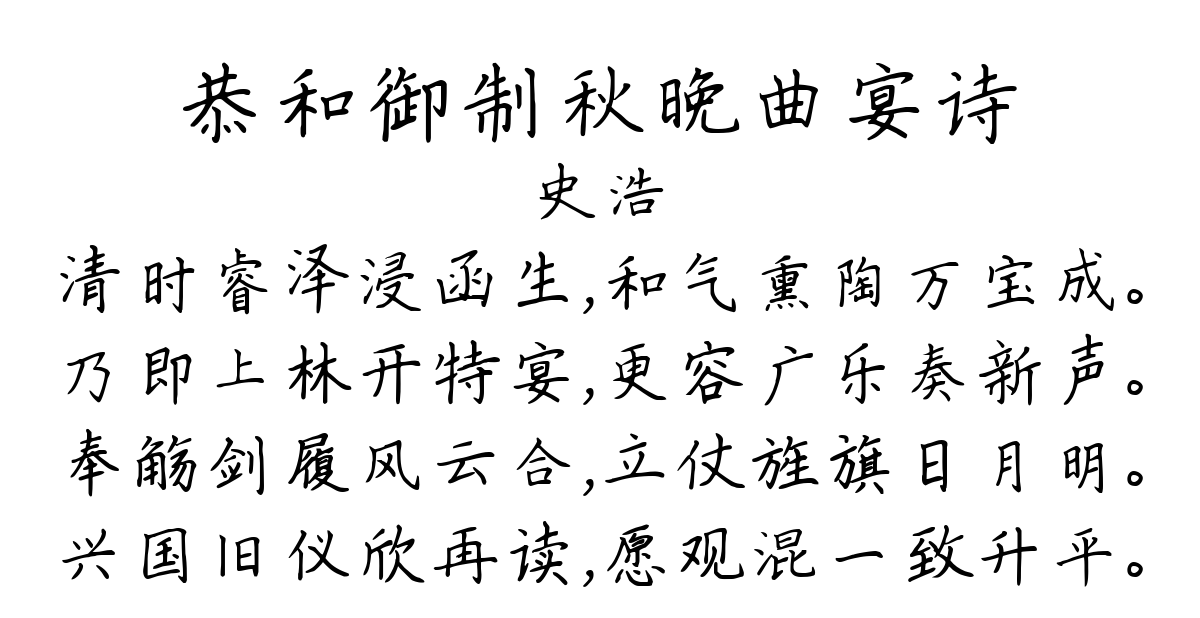 恭和御制秋晚曲宴诗
史浩
清时睿泽浸函生,和气熏陶万宝成。
乃即上林开特宴,更容广乐奏新声。
奉觞剑履风云合,立仗旌旗日月明。
兴国旧仪欣再读,愿观混一致升平。